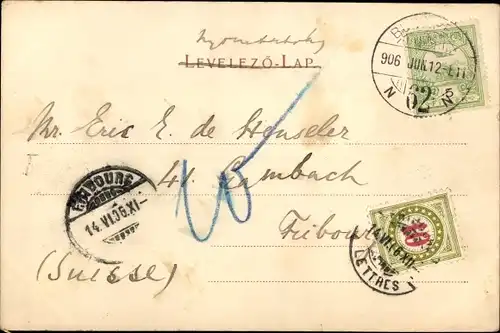 Nyomtatvány
LEVELEZŐ-LAP
906 JUN. 12
62
Mr. Eric E. de Heuseler
41. Lambach
Fribourg
(Suisse)
FRIBOURG
14.VI.06.XI-
10
LETTRES